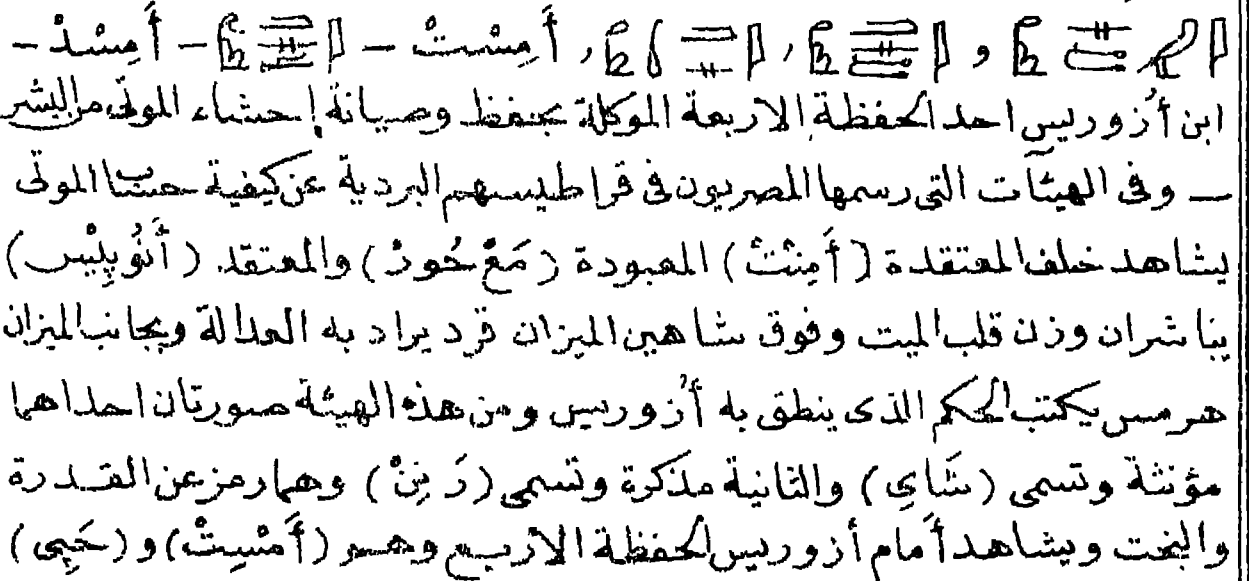 و , , أَمِسْتْ - - أَمِسْدْ -
ابن أُزوريس احد الحفظة الاربعة الموكلة بحفظ وصيانة إحشاء الموتى من البشر
— وفى الهيئات التى رسمها المصريون فى قراطيسهم البردية عن كيفية حساب الموتى
يشاهد خلف المعتقدة (أَمِنْتْ) المعبودة (مَعْ حُورْ) والمعتقد (أَنُوبِيْس)
يباشران وزن قلب الميت وفوق شاهين الميزان قرد يراد به العدالة وبجانب الميزان
هرمس يكتب الحكم الذى ينطق به أُزوريس ومن هذه الهيئة صورتان احداهما
مؤنثة وتسمى (شَاىِ) والثانية مذكرة وتسمى (رَنِنْ) وهما رمز عن القدرة
والبخت ويشاهد أَمام أزوريس الحفظة الاربع وهم (أَمْسِتْ) و (حَپِى)